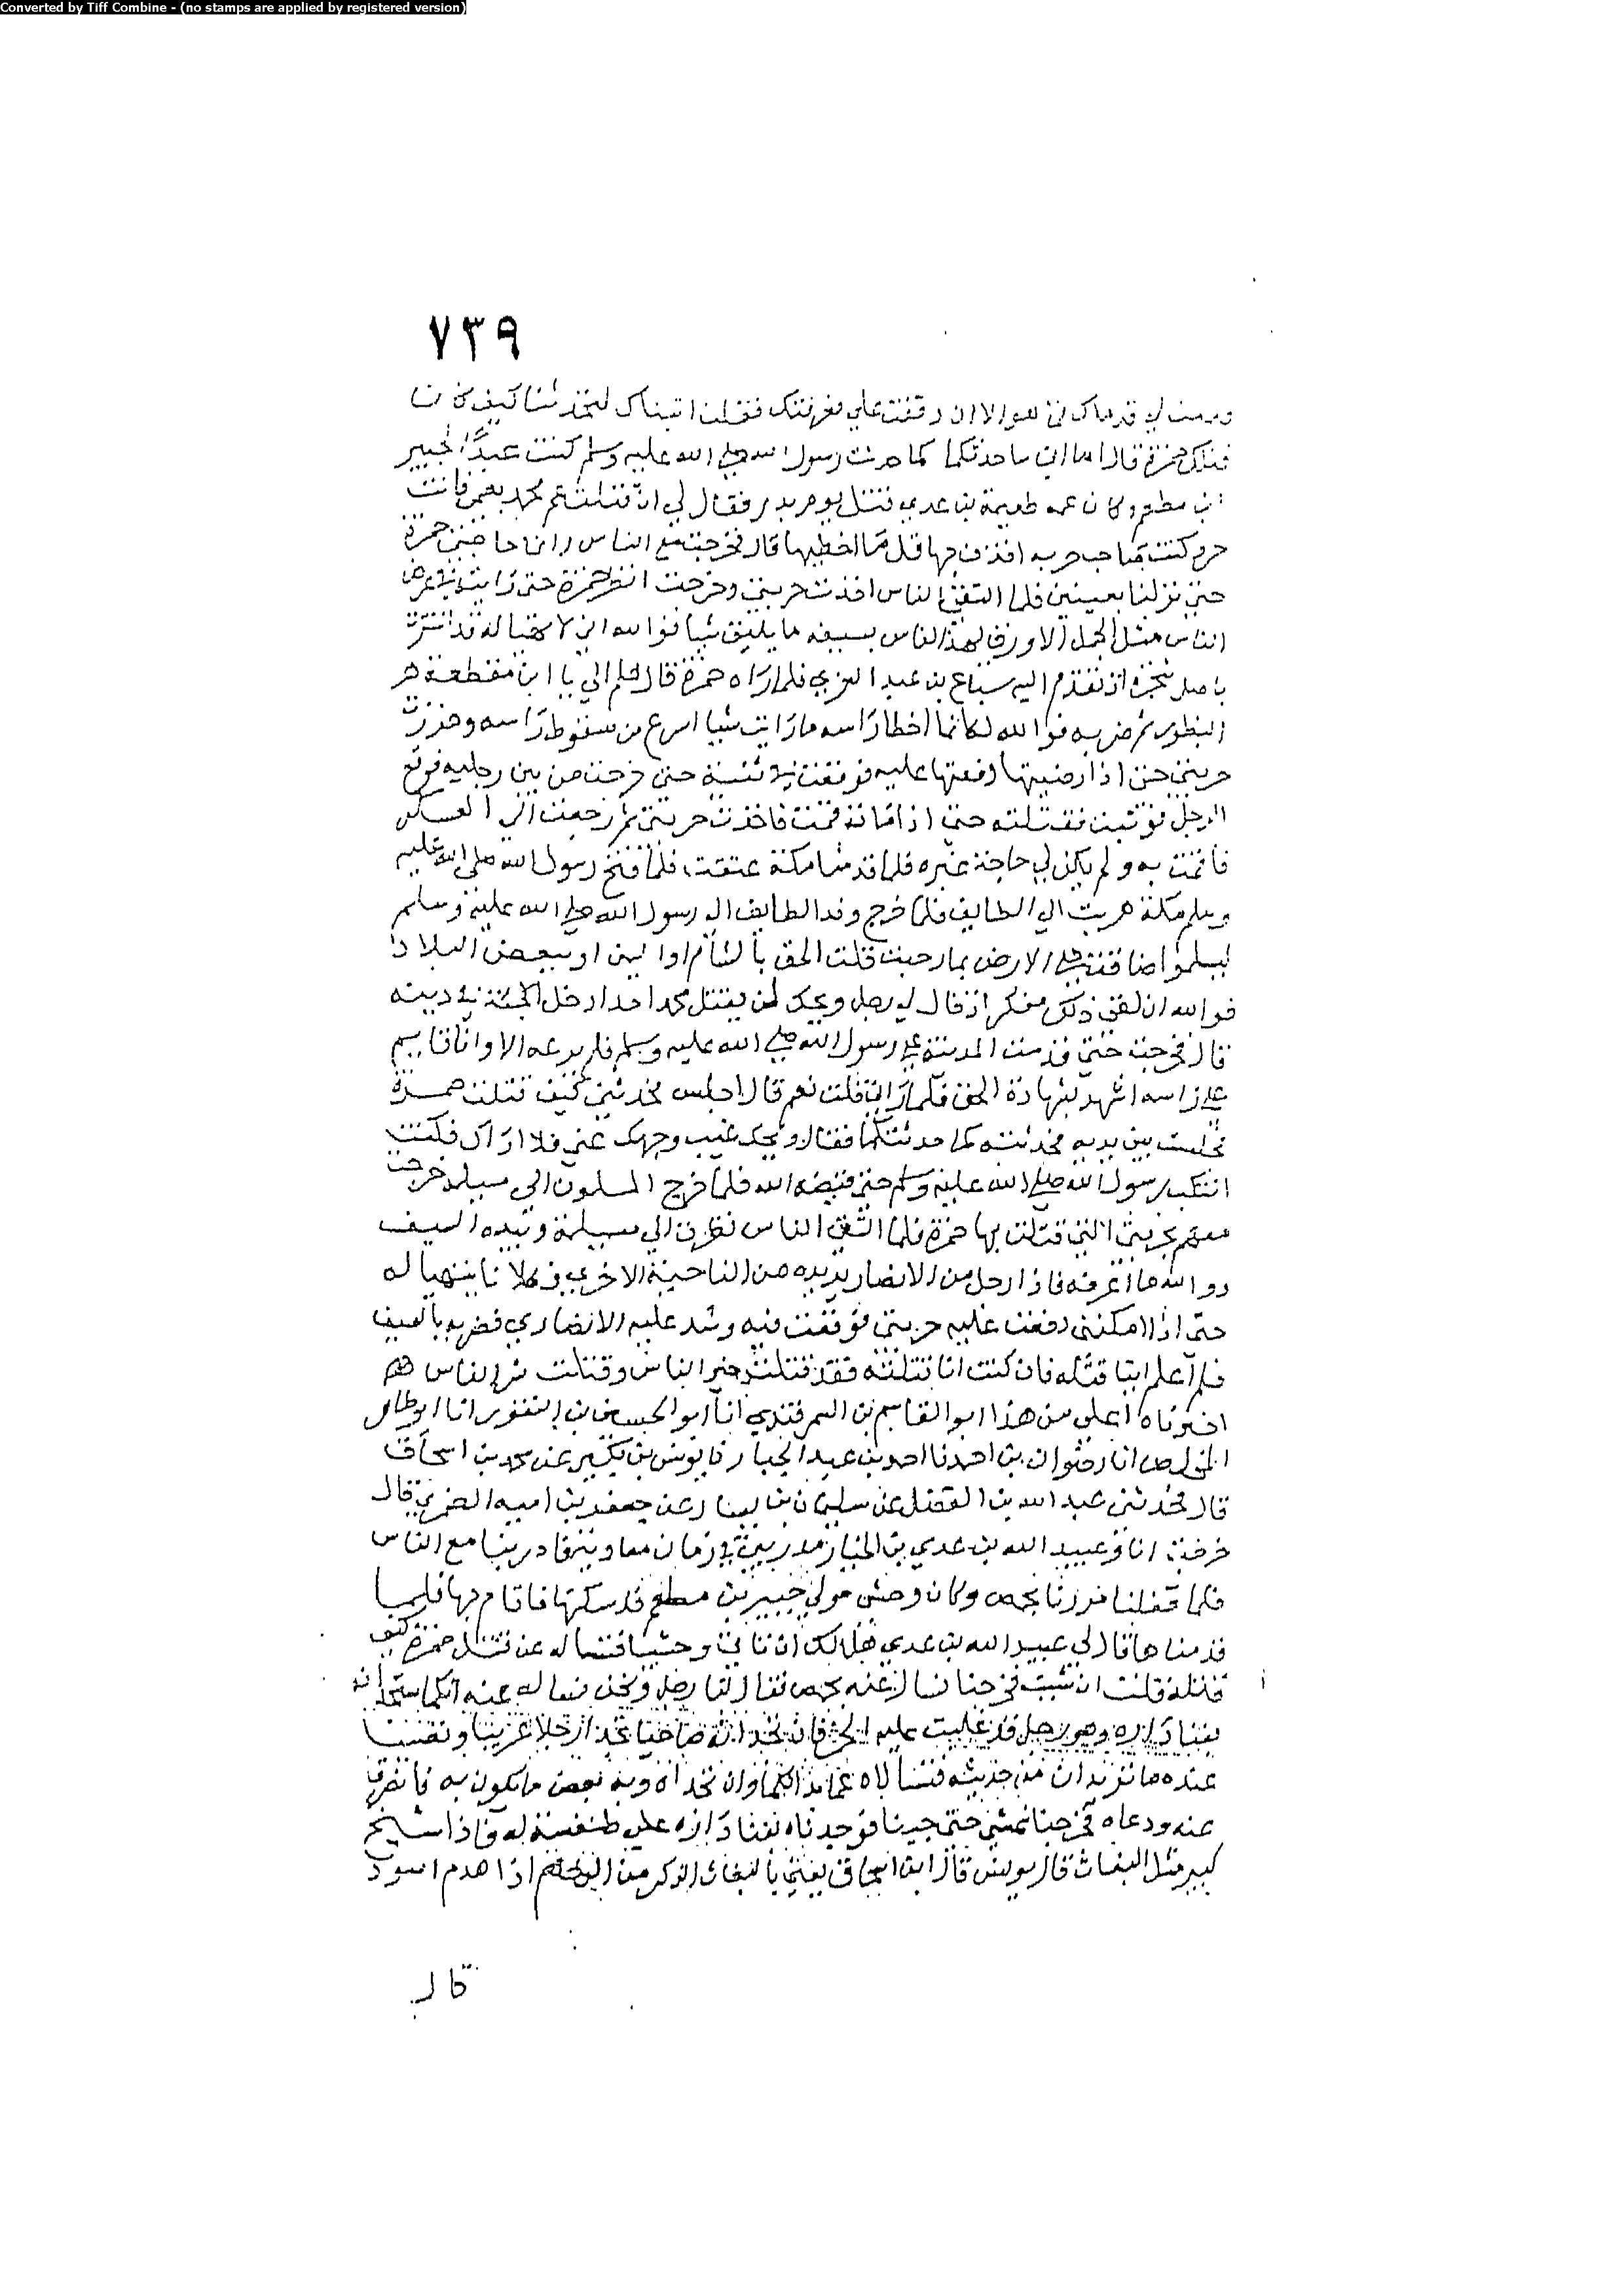 Converted by Tiff Combine - (no stamps are applied by registered version)
٧٣٩
لي قدماك فما هو الا ان وقفت علي فعرفتك فقلنا اتيناك لتحدثنا كيف كان
قتلك حمزة قال اما اني ساحدثكما كما حدثت رسول الله صلى الله عليه وسلم كنت عبدا لجبير
ابن مطعم وكان عمه طعيمة بن عدي قتل يوم بدر فقال لي ان قتلت عم محمد بعمي فانت
حر وكنت صاحب حربه اقذف بها قل ما اخطيها قال فخرجت مع الناس وانما حاجتي حمزة
حتى نزلنا بعينين فلما التقى الناس اخذت حربتي وخرجت انظر حمزة حتى رايته في عرض
الناس مثل الجمل الاورق يهذ الناس بسيفه ما يليق شيا فوالله اني لا تهيا له قد استترت
باصل شجرة اذ تقدم اليه سباع بن عبد العزي فلما راه حمزة قال هلم الي يا ابن مقطعة
البظور ثم ضربه فوالله لكانما اخطا راسه ما رايت شيا اسرع من سقوط راسه وهززت
حربتي حتى اذا رضيتها دفعتها عليه فوقعت في ثنته حتى خرجت من بين رجليه فوقع
الرجل فوثبت فقتلته حتى اذا مات قمت فاخذت حربتي ثم رجعت الي العسكر
فاقمت به ولم يكن لي حاجة غيره فلما قدمنا مكة عتقت فلما فتح رسول الله صلى الله عليه
وسلم مكة هربت الي الطايف فلما خرج وفد الطايف الي رسول الله صلى الله عليه وسلم
ليسلموا ضاقت علي الارض بما رحبت قلت الحق بالشام او اليمن او ببعض البلاد
فوالله اني لفي ذلك مفكر اذ قال لي رجل ويحك لن يقتل محمد احدا دخل في دينه
قال فخرجت حتى قدمت المدينة على رسول الله صلى الله عليه وسلم فلم يرعه الا وانا قايم
على راسه اشهد بشهادة الحق فلما راني قلت نعم قال اجلس فحدثني كيف قتلت حمزة
فجلست بين يديه فحدثته كما حدثتكما فقال ويحك غيب وجهك عني فلا اراك فكنت
اتنكب رسول الله صلى الله عليه وسلم حتى قبضه الله فلما خرج المسلمون الي مسيلمة خرجت
معهم بحربتي التي قتلت بها حمزة فلما التقى الناس نظرت الي مسيلمة وبيده السيف
ووالله ما اعرفه فاذا رجل من الانصار يريده من الناحية الاخري فكلانا يتهيا له
حتى اذا امكنني دفعت عليه حربتي فوقعت فيه وشد عليه الانصاري فضربه بالسيف
فلم اعلم اينا قتله فان كنت انا قتلته فقد قتلت خير الناس وقتلت شر الناس
اخبرناه اعلى من هذا ابو القاسم بن السمرقندي انا ابو الحسين بن النقور انا ابو طاهر
المخلص انا رضوان بن احمد نا احمد بن عبد الجبار نا يونس بن بكير عن محمد بن اسحاق
قال فحدثني عبد الله بن الفضل عن سليمان بن يسار عن جعفر بن اميه الضمري قال
خرجت انا وعبيد الله بن عدي بن الخيار مدربين في زمان معاوية فادربنا مع الناس
فلما قفلنا مررنا بحمص وكان وحشي مولي جبير بن مطعم قد سكنها فاقام بها فلما
قدمناها قال لي عبيد الله بن عدي هل لك ان ناتي وحشيا فنساله عن قتل حمزة كيف
قتله قلت ان شيت فخرجنا نسال عنه بحمص فقال لنا رجل ونحن نساله عنه انكما ستجدانه
بفنا داره وهو رجل قد غلبت عليه الخمر فان تجدانه صاحيا تجدا رجلا عربيا
عنده ما تريدان من حديثه فتسالاه عما بدا لكما وان تجداه وبه بعض ما يكون به فانصرفا
عنه ودعاه فخرجنا نمشي حتى جينا فوجدناه بفنا داره علي طنفسة له فاذا شيخ
كبير مثل البغاث قال يونس قال ابن اسحاق يعني بالبغاث الذكر من الرخم اذا هرم اسود
قال